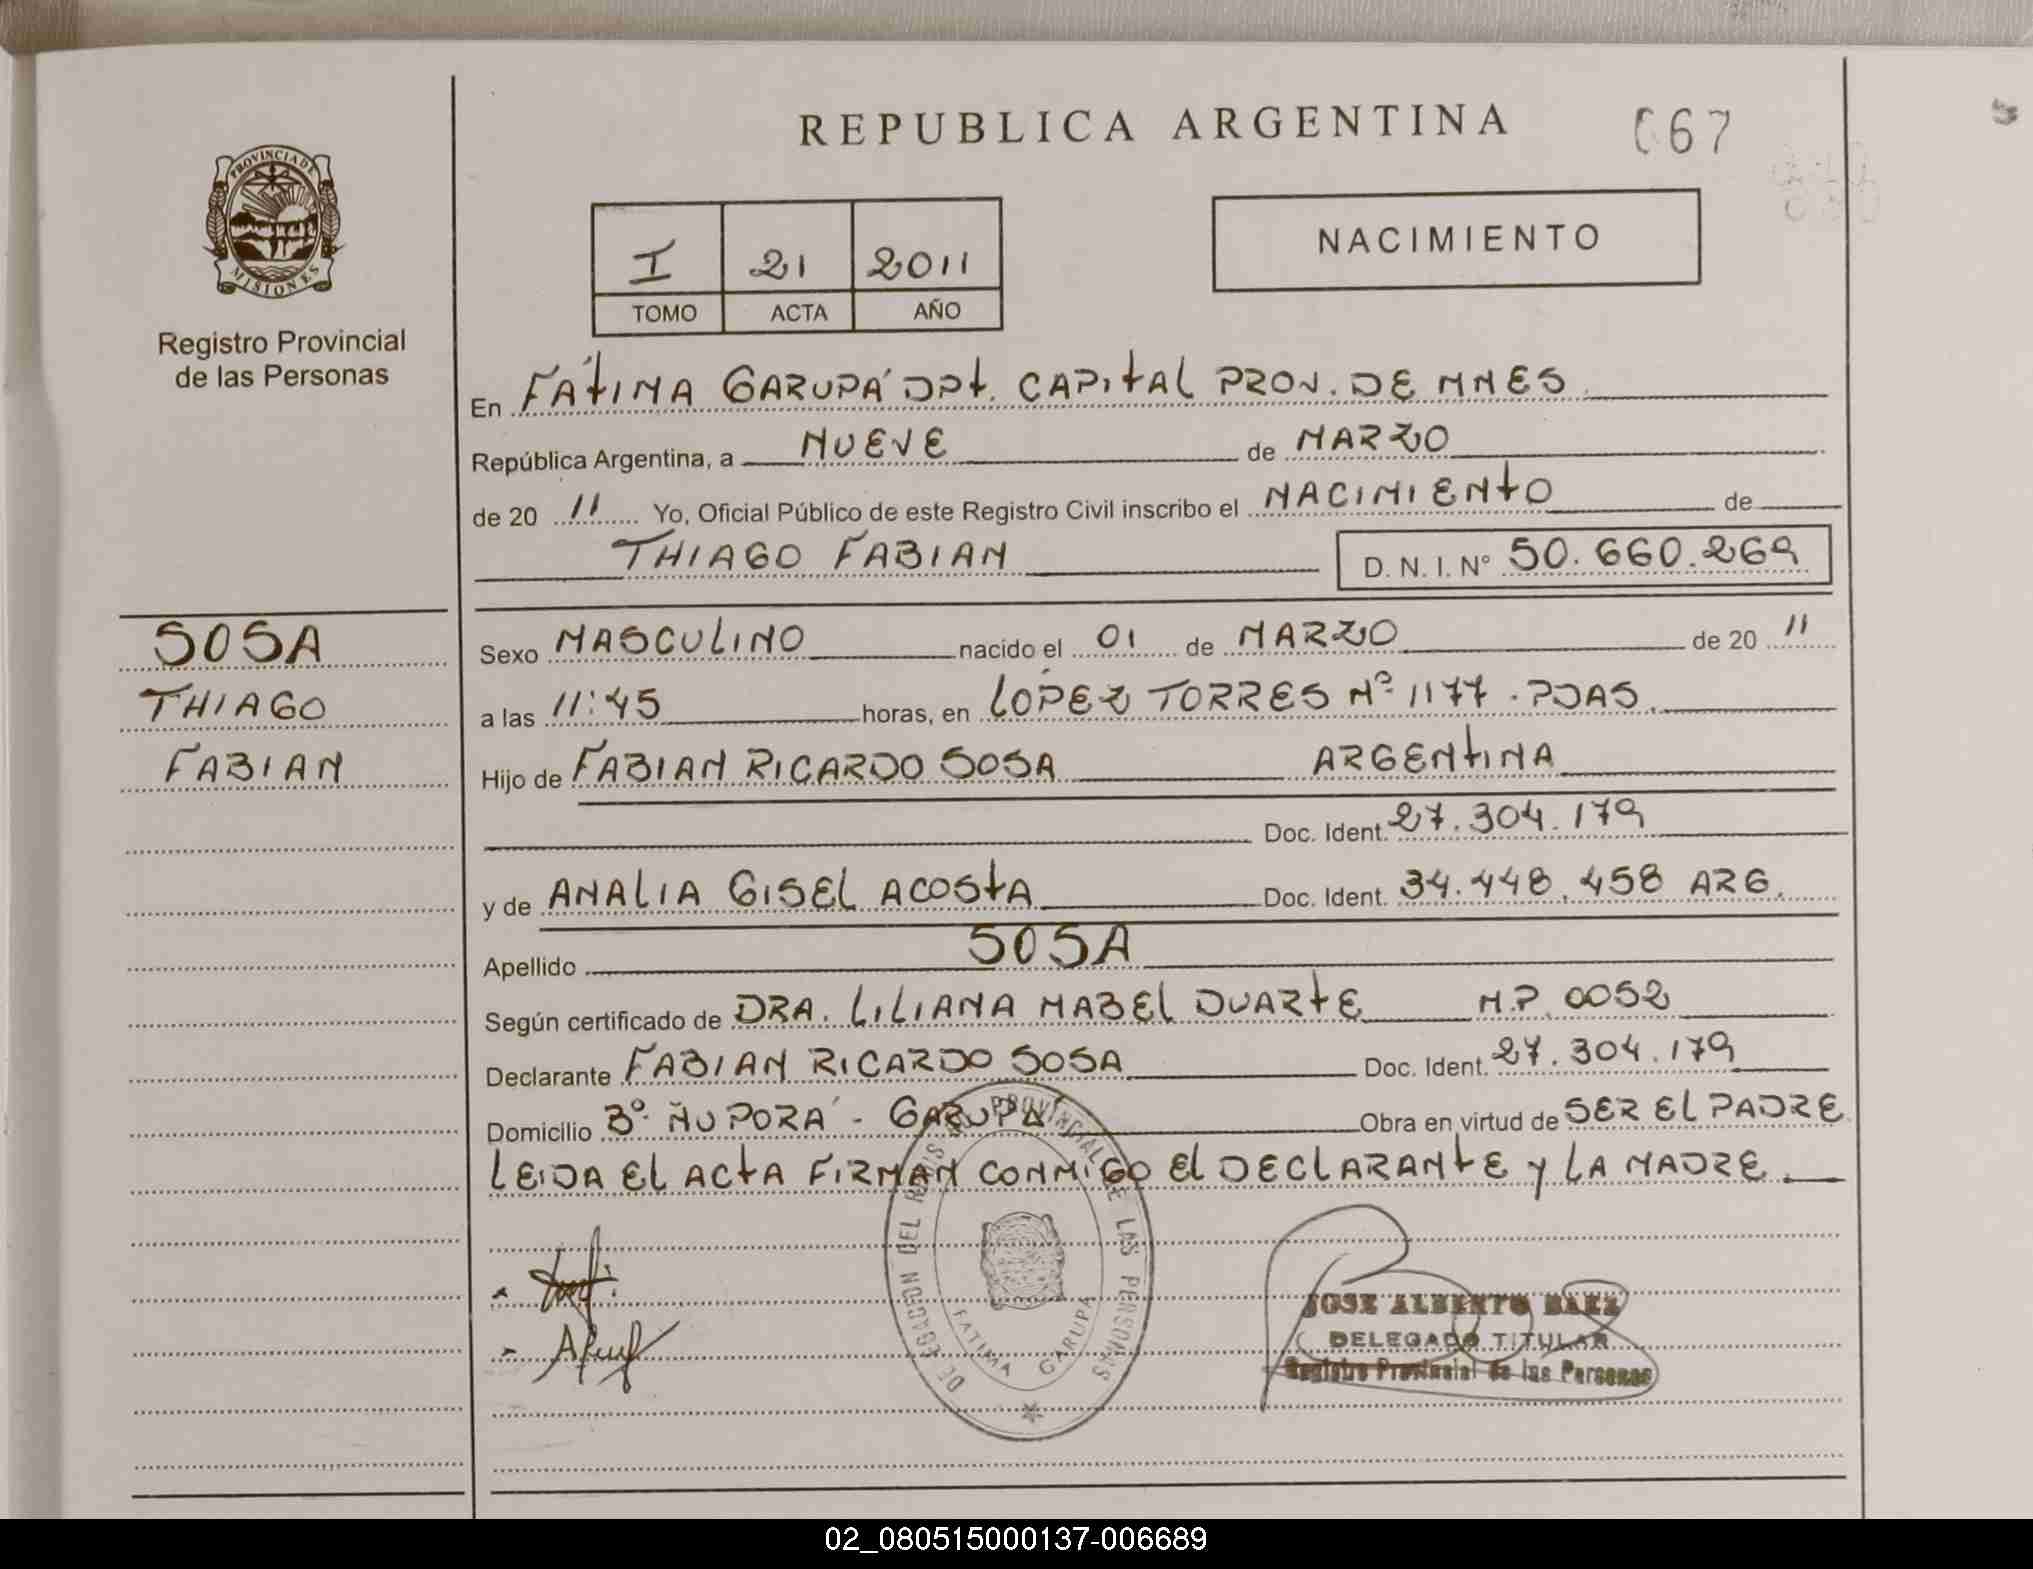 REPUBLICA ARGENTINA
067
PROVINCIA DE
MISIONES
Registro Provincial
de las Personas
I 21 2011
TOMO ACTA AÑO
NACIMIENTO
En FÁTIMA GARUPÁ DPT. CAPITAL PROV. DE MNES
República Argentina, a NUEVE de MARZO
de 20 11 Yo, Oficial Público de este Registro Civil inscribo el NACIMIENTO de
THIAGO FABIAN D. N. I. N° 50.660.269
SOSA
THIAGO
FABIAN
Sexo MASCULINO nacido el 01 de MARZO de 20 11
a las 11:45 horas, en LÓPEZ TORRES Nº 1177 - PDAS.
Hijo de FABIAN RICARDO SOSA ARGENTINA
Doc. Ident. 27.304.179
y de ANALIA GISEL ACOSTA Doc. Ident. 34.448.458 ARG.
Apellido SOSA
Según certificado de DRA. LILIANA MABEL DUARTE M.P. 0052
Declarante FABIAN RICARDO SOSA Doc. Ident. 27.304.179
Domicilio Bº ÑU PORÁ - GARUPÁ Obra en virtud de SER EL PADRE
LEIDA EL ACTA FIRMAN CONMIGO EL DECLARANTE Y LA MADRE.
PROVINCIAL DE LAS PERSONAS
FATIMA GARUPA
JOSE ALBERTO BAEZ
DELEGADO TITULAR
Registro Provincial de las Personas
02_080515000137-006689